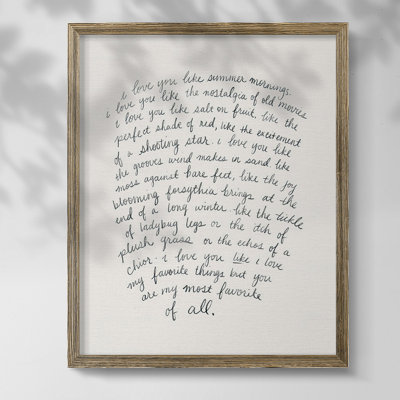 i love you like summer mornings.
i love you like the nostalgia of old movies
i love you like salt on fruit, like the
perfect shade of red, like the excitement
of a shooting star. i love you like
the grooves wind makes in sand, like
moss against bare feet, like the joy
blooming forsythia brings at the
end of a long winter like the tickle
of ladybug legs or the itch of
plush grass or the echos of a
chior. i love you like i love
my favorite things but you
are my most favorite
of all.